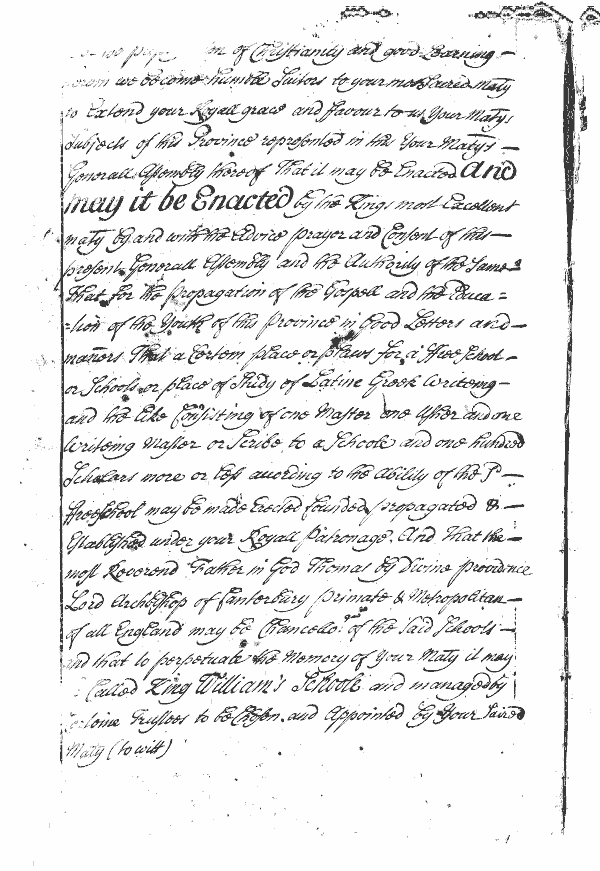 on of Christianity and good Learning —
we become humble Suitors to your most Sacred Maty
to Extend your Royall grace and favour to us Your Matys
Subjects of this Province represented in this Your Matys —
Generall Assembly thereof That it may be Enacted And
may it be Enacted by the Kings most Excellent
Maty by and with the Advice prayer and Consent of this —
present Generall Assembly and the Authority of the Same
That for the Propagation of the Gospell and the Educa =
=tion of the Youth of this Province in Good Letters and —
manners That a Certain place or places for a ffree School —
or Schools or place of Study of Latine Greek Writeing —
and the like Consisting of one Master one Usher and one
Writeing Master or Scribe to a Schoole and one hundred
Schollars more or less according to the Ability of the sd —
ffreeschool may be made Erected founded propagated & —
Established under your Royall Patronage. And That the —
most Reverend Father in God Thomas by Divine providence
Lord ArchBishop of Canterbury Primate & Metropolitan —
of all England may be Chancellor of the Said Schools —
and that to perpetuate the Memory of Your Maty it may
Called King William's Schoole and managed by
Certaine Trustees to be Chosen and Appointed by Your Sacred
Maty (to witt)